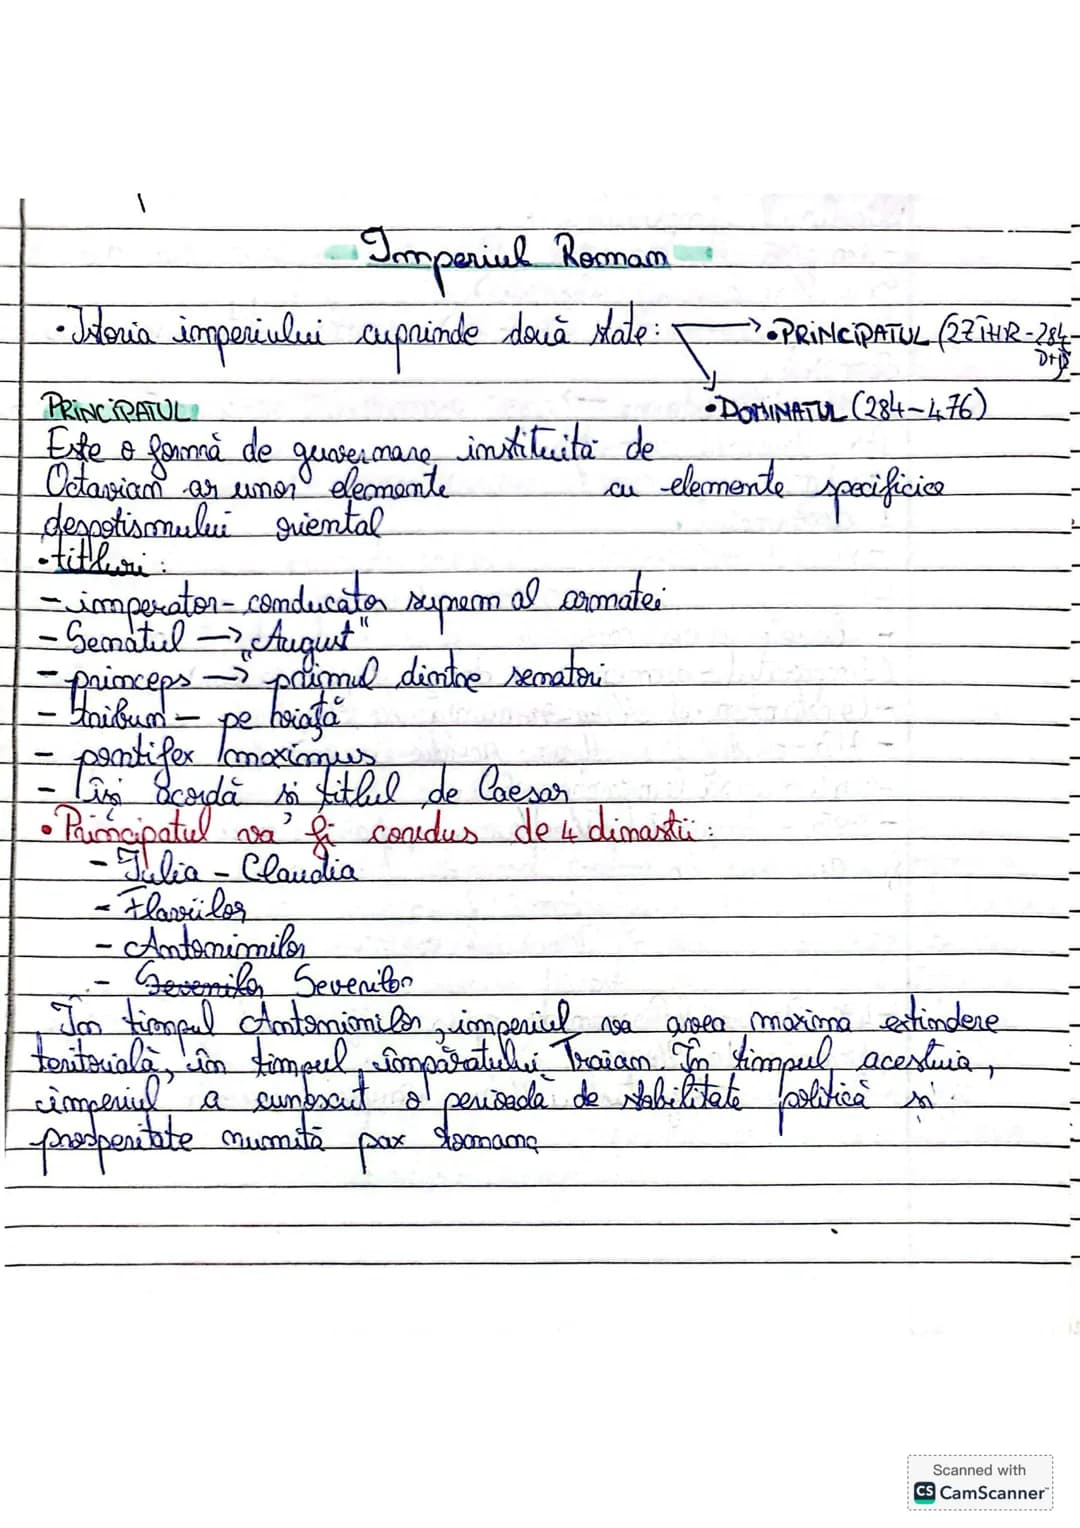 Imperiul Roman
• Istoria imperiului cuprinde două state: → • PRINCIPATUL (27 ÎHR-284
D+H)
PRINCIPATUL
• DOMINATUL (284-476)
Este o formă de guvernare instituită de
Octavian ar unor elemente cu elemente specificice
despotismului oriental
• titluri:
- imperator - conducător suprem al armatei
- Senatul → „August"
- princeps → primul dintre senatori
- tribun - pe viață
- pontifex maximus
- își acordă și titlul de Caesar
• Principatul va fi condus de 4 dinastii:
- Iulia - Claudia
- Flaviilor
- Antoninilor
- Severilor Severilor
În timpul Antoninilor, imperiul va avea maxima extindere
teritorială, în timpul împăratului Traian. În timpul acestuia,
imperiul a cunoscut o perioadă de stabilitate politică și
prosperitate numită pax romana
Scanned with
CS CamScanner